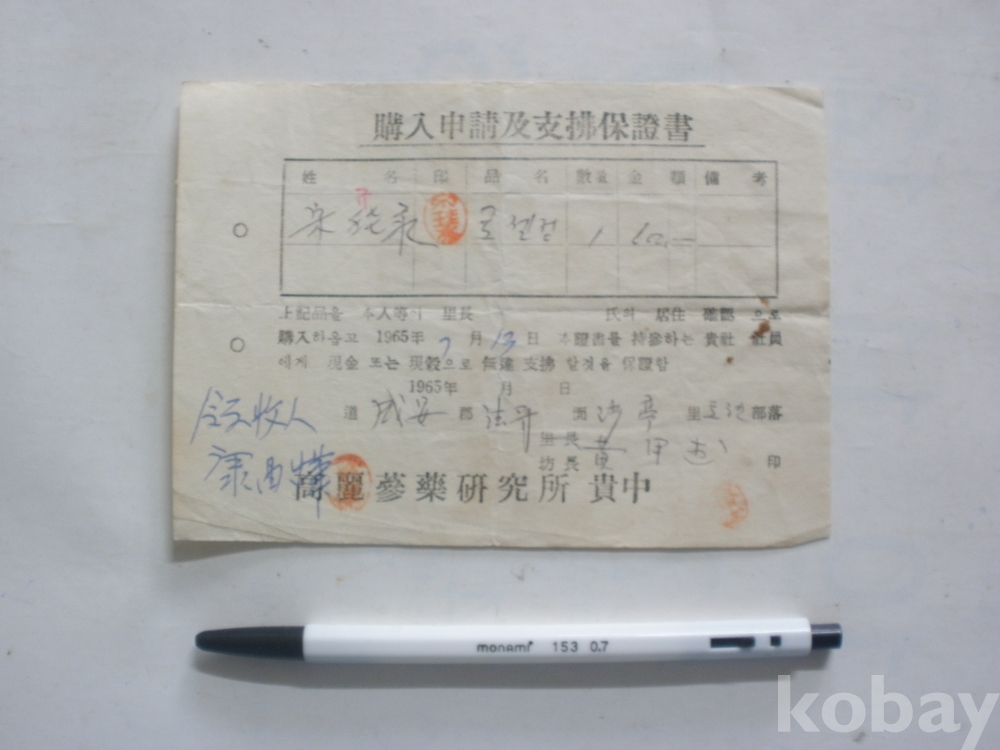 購入申請及支拂保證書
姓 名 印 品 名 數量 金 額 備 考
宋
上記品을 本人等이 里長 氏의 居住 確認 으로
購入하옵고 1965年 7 月 13 日 本證書를 持參하는 貴社 社員
에게 現金 또는 現穀으로 無違 支拂 할것을 保證함
1965年 月 日
道 咸安 郡 法守 面 沙亭 里 部落
領收人
里長
坊長 印
高麗蔘藥硏究所 貴中
monami 153 0.7
kobay